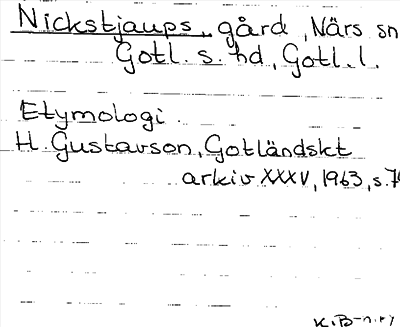 Nickstjaups, gård, Närs sn
Gotl. s. hd, Gotl. l.
Etymologi
H. Gustavson, Gotländskt
arkiv XXXV, 1963, s.